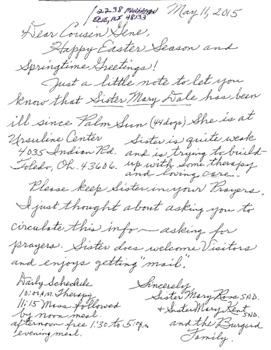 May 11, 2015
Dear Cousin Gene,
Happy Easter Season and
Springtime Greetings!
Just a little note to let you
know that Sister Mary Dale has been
ill since Palm Sun (44 days) She is at
Ursuline Center
4035 Indian Rd.
Toledo, Oh. 43606.
Sister is quite weak
and is trying to build-
up with some therapy
and loving care.
Please keep Sister in your Prayers.
I just thought about asking you to
circulate this info — asking for
prayers. Sister does welcome Visitors
and enjoys getting "mail".
Daily Schedule
10:00 A.M. Therapy
11:15 Mass followed
by noon meal.
afternoon free 1:30 to 5:00 P.M.
evening meal.
Sincerely
Sister Mary Rose SND.
& Sister Mary Kent SND.
and the
Family.